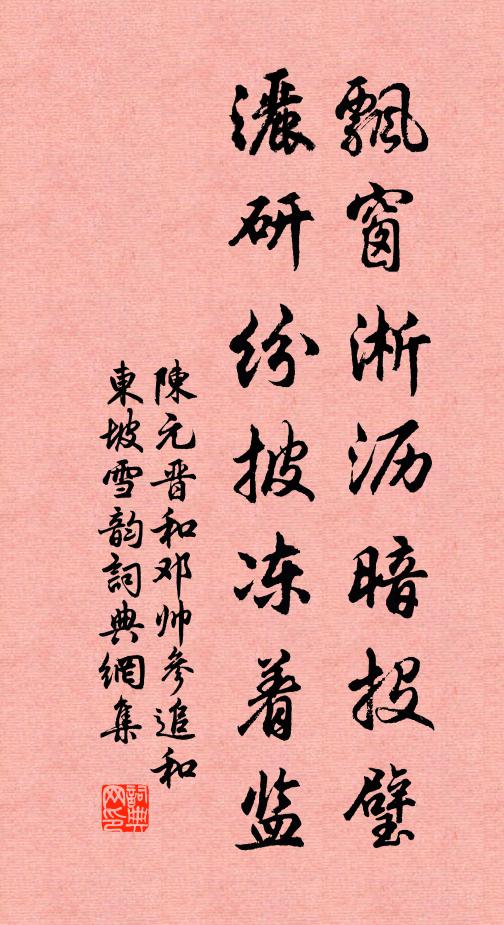 飄窗淅沥暗投璧
灑研纷披冻着监
陳元晋和邓帅參追和
東坡雪韵詞典網集
詞典网印